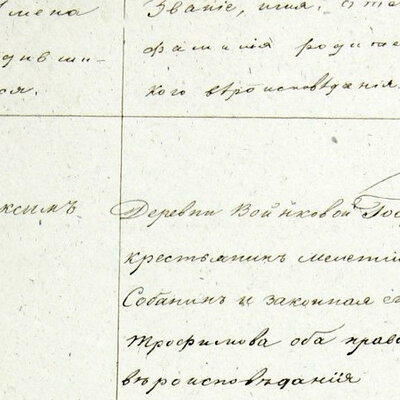 Имена
Званіе, имя, оте
дивши-
фамилія родите
ся.
кого вѣроисповѣданія
ксимъ
Деревни Войнковой Гос
крестьянинъ Мелетій
Собанинъ и законная е
Трофимова оба право
вѣроисповѣданія